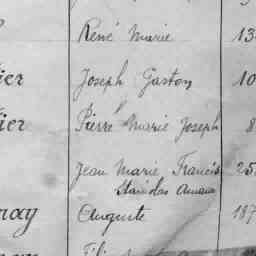 René Marie 13
ier Joseph Gaston 10
ier Pierre Marie Joseph 8
Jean Marie Francis 25
Stanislas
nay Auguste 187